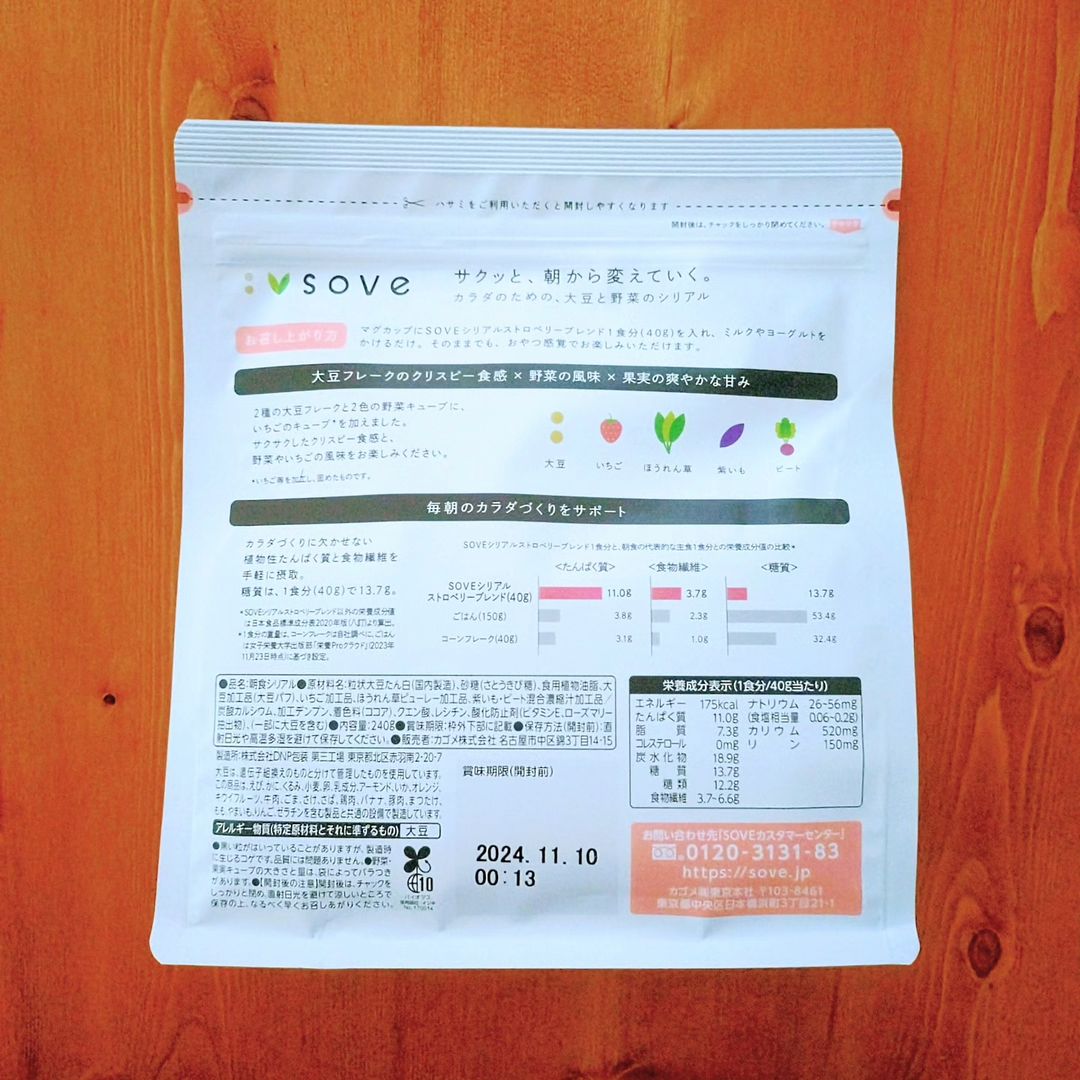 ハサミをご利用いただくと開封しやすくなります
開封後は、チャックをしっかり閉めてください。
sove
サクッと、朝から変えていく。
カラダのための、大豆と野菜のシリアル
お召し上がり方
マグカップにSOVEシリアルストロベリーブレンド1食分(40g)を入れ、ミルクやヨーグルトを
かけるだけ。そのままでも、おやつ感覚でお楽しみいただけます。
大豆フレークのクリスピー食感×野菜の風味×果実の爽やかな甘み
2種の大豆フレークと2色の野菜キューブに、
いちごのキューブ*を加えました。
サクサクしたクリスピー食感と、
野菜やいちごの風味をお楽しみください。
*いちご等を加工し、固めたものです。
大豆
いちご
ほうれん草
紫いも
ビート
毎朝のカラダづくりをサポート
カラダづくりに欠かせない
植物性たんぱく質と食物繊維を
手軽に摂取。
糖質は、1食分(40g)で13.7g。
*SOVEシリアルストロベリーブレンド以外の栄養成分値
は日本食品標準成分表2020年版(八訂)より算出。
*1食分の重量は、コーンフレークは自社調べに、ごはん
は女子栄養大学出版部「栄養Proクラウド」(2023年
11月23日時点)に基づき設定。
SOVEシリアルストロベリーブレンド1食分と、朝食の代表的な主食1食分との栄養成分値の比較*
<たんぱく質> <食物繊維> <糖質>
SOVEシリアル
ストロベリーブレンド(40g) 11.0g 3.7g 13.7g
ごはん(150g) 3.8g 2.3g 53.4g
コーンフレーク(40g) 3.1g 1.0g 32.4g
●品名:朝食シリアル●原材料名:粒状大豆たん白(国内製造)、砂糖(さとうきび糖)、食用植物油脂、大
豆加工品(大豆パフ)、いちご加工品、ほうれん草ピューレー加工品、紫いも・ビート混合濃縮汁加工品/
炭酸カルシウム、加工デンプン、着色料(ココア)、クエン酸、レシチン、酸化防止剤(ビタミンE、ローズマリー
抽出物)、(一部に大豆を含む)●内容量:240g●賞味期限:枠外下部に記載●保存方法(開封前):直
射日光や高温多湿を避けて保存してください。●販売者:カゴメ株式会社 名古屋市中区錦3丁目14-15
製造所:株式会社DNP包装 第三工場 東京都北区赤羽南2-20-7
大豆は、遺伝子組換えのものと分けて管理したものを使用しています。
この商品は、えび、かに、くるみ、小麦、卵、乳成分、アーモンド、いか、オレンジ、
キウイフルーツ、牛肉、ごま、さけ、さば、鶏肉、バナナ、豚肉、まつたけ、
もも、やまいも、りんご、ゼラチンを含む製品と共通の設備で製造しています。
アレルギー物質(特定原材料とそれに準ずるもの) 大豆
●黒い粒がはいっていることがありますが、製造時
に生じるコゲです。品質には問題ありません。●野菜・
果実キューブの大きさと量は、袋によってバラつき
があります。●【開封後の注意】開封後は、チャックを
しっかりと閉め、直射日光を避けて涼しいところで
保存の上、なるべく早くお召しあがりください。
10
バイオマス
No.170014
賞味期限(開封前)
2024.11.10
00:13
栄養成分表示(1食分/40g当たり)
エネルギー 175kcal ナトリウム 26-56mg
たんぱく質 11.0g (食塩相当量 0.06-0.2g)
脂質 7.3g カリウム 520mg
コレステロール 0mg リン 150mg
炭水化物 18.9g
糖質 13.7g
糖類 12.2g
食物繊維 3.7-6.6g
お問い合わせ先「SOVEカスタマーセンター」
0120-3131-83
https://sove.jp
カゴメ㈱東京本社 〒103-8461
東京都中央区日本橋浜町3丁目21-1